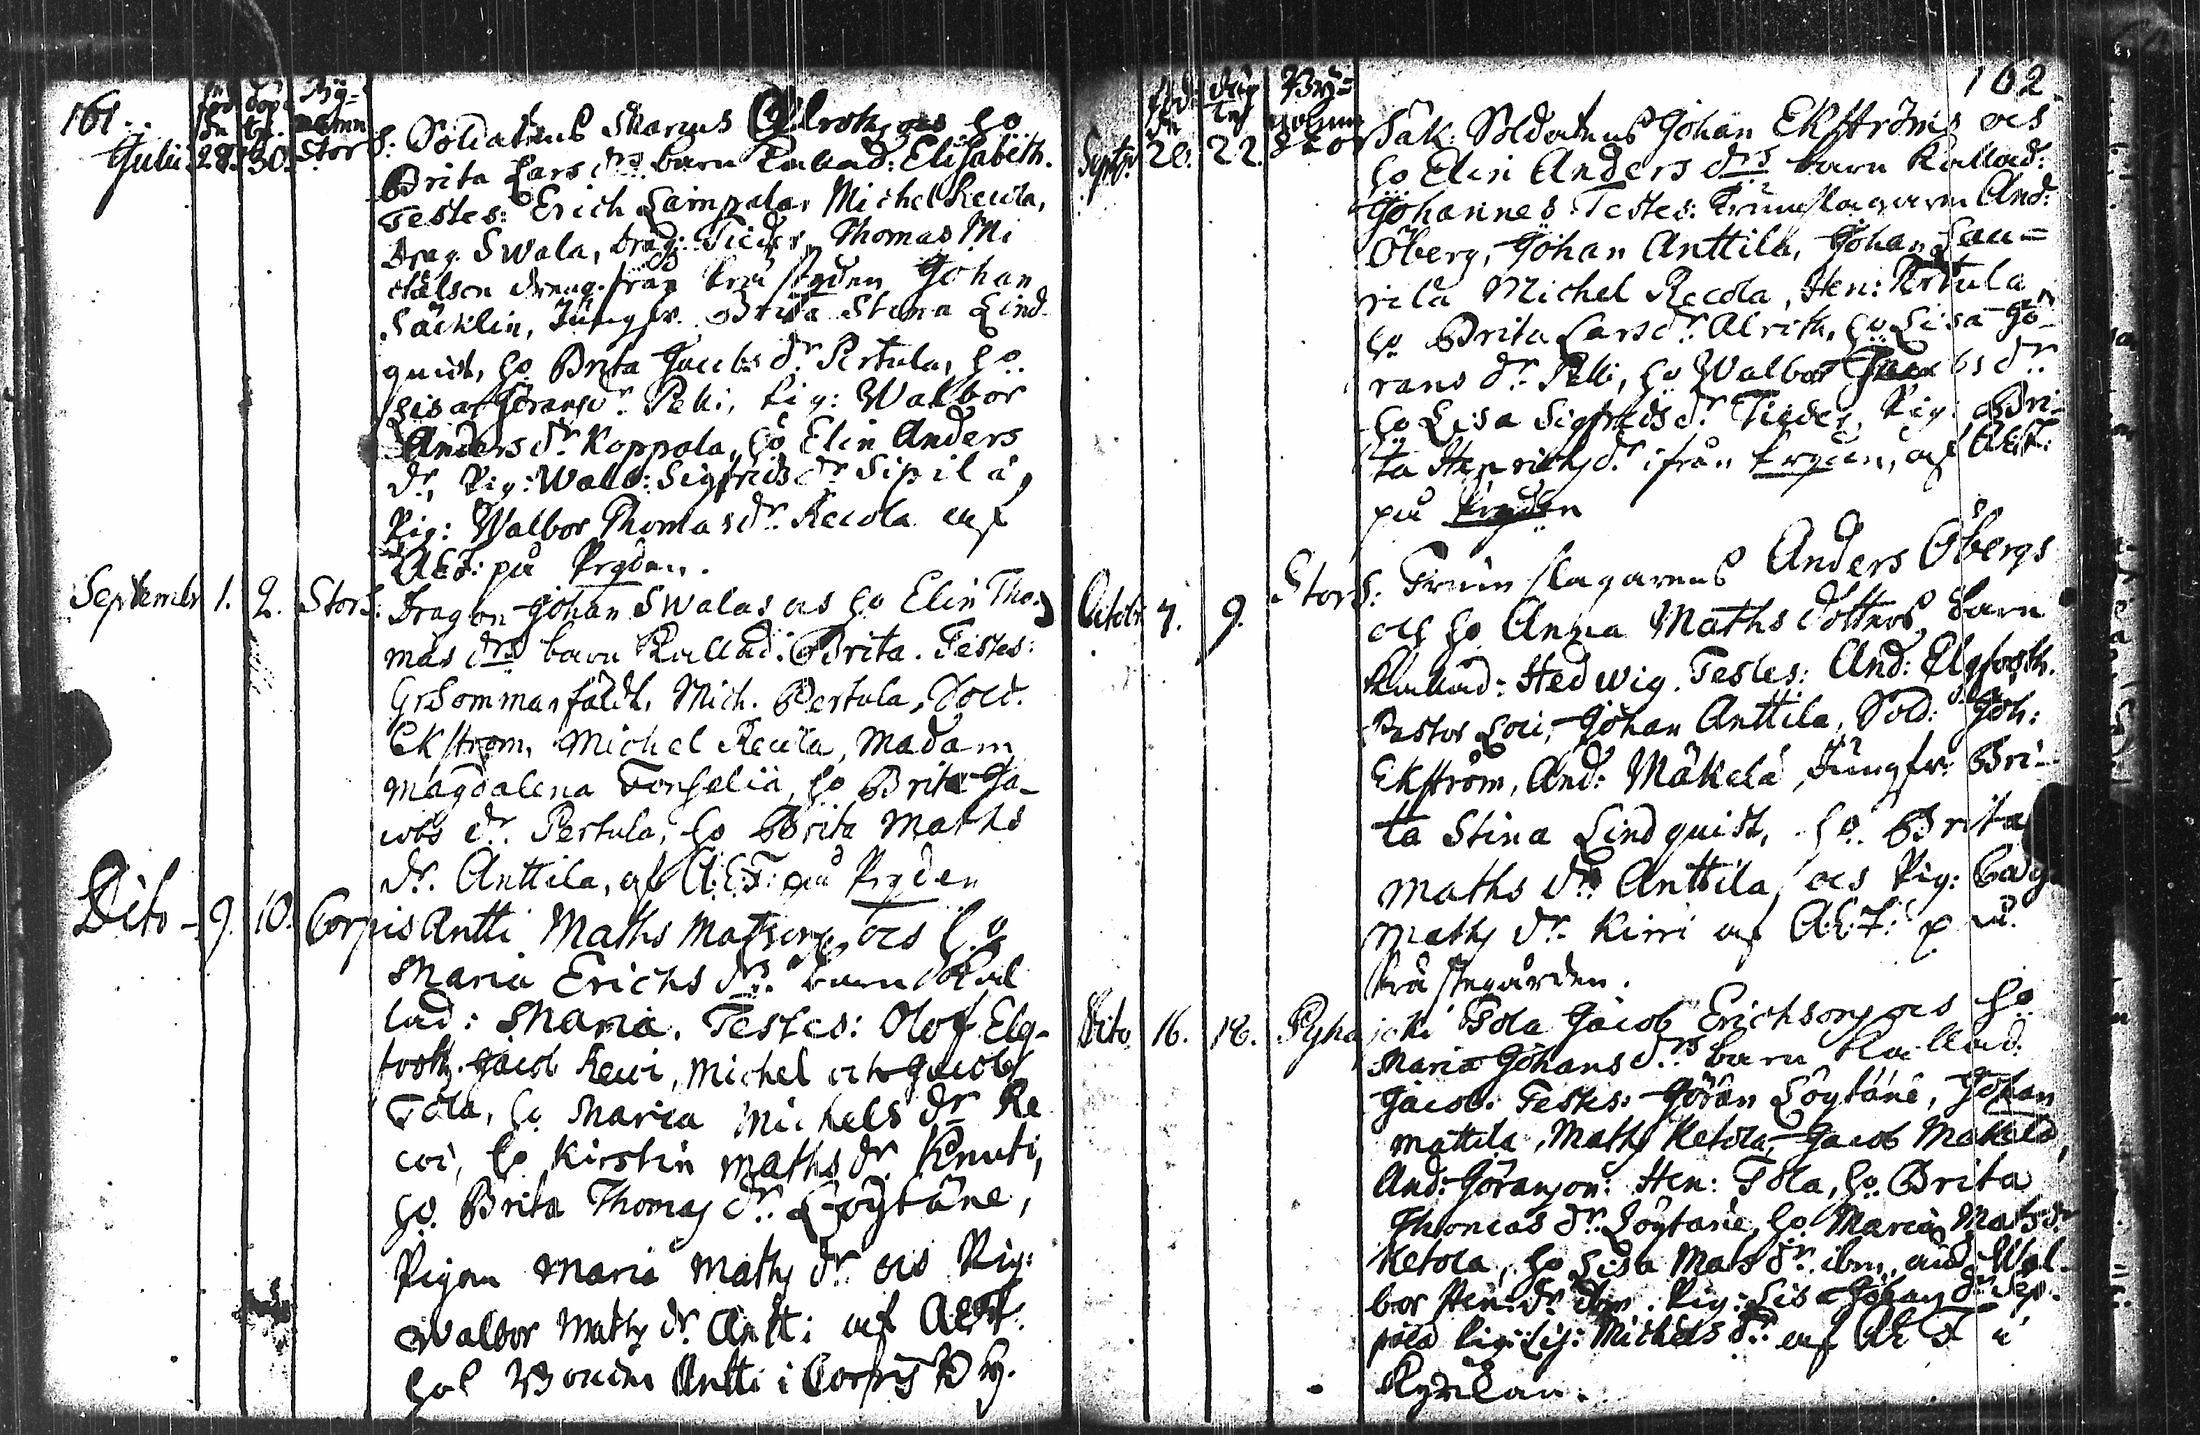 161.
föd dop By=
den ter. namn
Julii 28. 30. Stor S: Soldatens Marcus Alroth och Ho
Brita Lars drs barn kallad: Elisabeth.
Testes: Erich Lampola, Michel Recola,
Drag. Swala, Drag: Tieder, Thomas Mi
chälson dreng från Johan
Säcklin, Jungfr. Brita Stina Lind-
quist, Ho Brita Jacobs dr Pertula, Ho
Lisa Görans dr Pelli, Pig: Walbor
Anders dr Koppola, Ho Elin Anders
dr, Pig: Walb: Sigfreds dr Sipilä,
Pig: Walbor Thomas dr Recola af
A.E.F: på Prgden.
Septembr 1. 2. Stor S. Dragon Johan Swalas och Ho Elin Tho-
mas drs barn kallad: Brita. Testes:
Sommarfäldt, Mich. Pertula, Sold.
Ekstrom, Michel Recola, Madam
Magdalena Forselia, Ho Brita Ja-
cobs dr. Pertula, Ho Brita Maths
dr. Anttila, af A.E.F: på Prgden
Dito - 9. 10. Corpis Antti Maths Matsons och Ho
Maria Erichs drs barn kal
lad: Maria. Testes: Olof Elg-
footh, Jacob Keivi, Michel och Jacob
Tola, Ho Maria Michels dr Re
coi, Ho Kirstin Maths dr Knuti,
Ho. Brita Thomas dr. Löytäne,
Pigan Maria Maths dr och Pig:
Walbor Maths dr Antti af A.E.F.
hos Bonden Antti i Corpis By.
162.
föd. döp By=
den tes namn
Septbr. 20. 22. Stor Säk: Soldatens Johan Ekströms och
Ho Elin Anders drs barn kallad:
Johannes. Testes: Trumslagaren And:
Öberg, Johan Anttila, Johan Lau=
rila Michel Recola, Hen: Pertula
Ho Brita Lars dr. Alroth, Ho Lisa Gö-
rans dr. Pelli, Ho Walbor Jacobs dr.
Ho Lisa Sigfreds dr Tieder, Pig. Bri-
ta Henrichs dr. ifrån Prgden, af A.E.F:
på Prgden
Octobr. 7. 9. Stor S: Trumslagarens Anders Öbergs
och Ho Anna Maths dotters barn
kallad: Hedwig. Testes: And: Elgfooth.
Pastor Loci, Johan Anttila, Sold: Joh:
Ekström, And: Mäkelä, Jungfr: Bri-
ta Stina Lindquist, Ho. Brita
Maths dr. Anttila, och Pig:
Maths dr. Kirri af A.E.F: på
Prästegården.
Dito. 16. 18. Pyhä jcki Tola Jacob Erichsons och Ho
Maria Johans drs barn kallad:
Jacob. Testes: Göran Löytäne, Johan
Mattila, Maths Ketola, Jacob Mäkelä,
And: Göranson. Hen: Tola, Ho. Brita
Thomas dr. Löytäne, Ho Maria Mats dr
Ketola, Ho Lisa Mats dr. ibm, Wal-
bor Hen: dr. Pig: Lisa Johans dr Sep-
pälä Pig: Michels dr. af A.E.F i
Kyrckan.